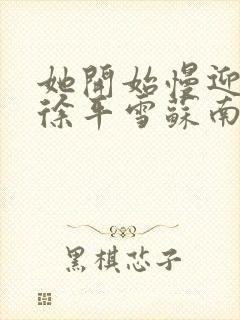 她開始慢迎
徐平雪蘇南
黑棋芯子